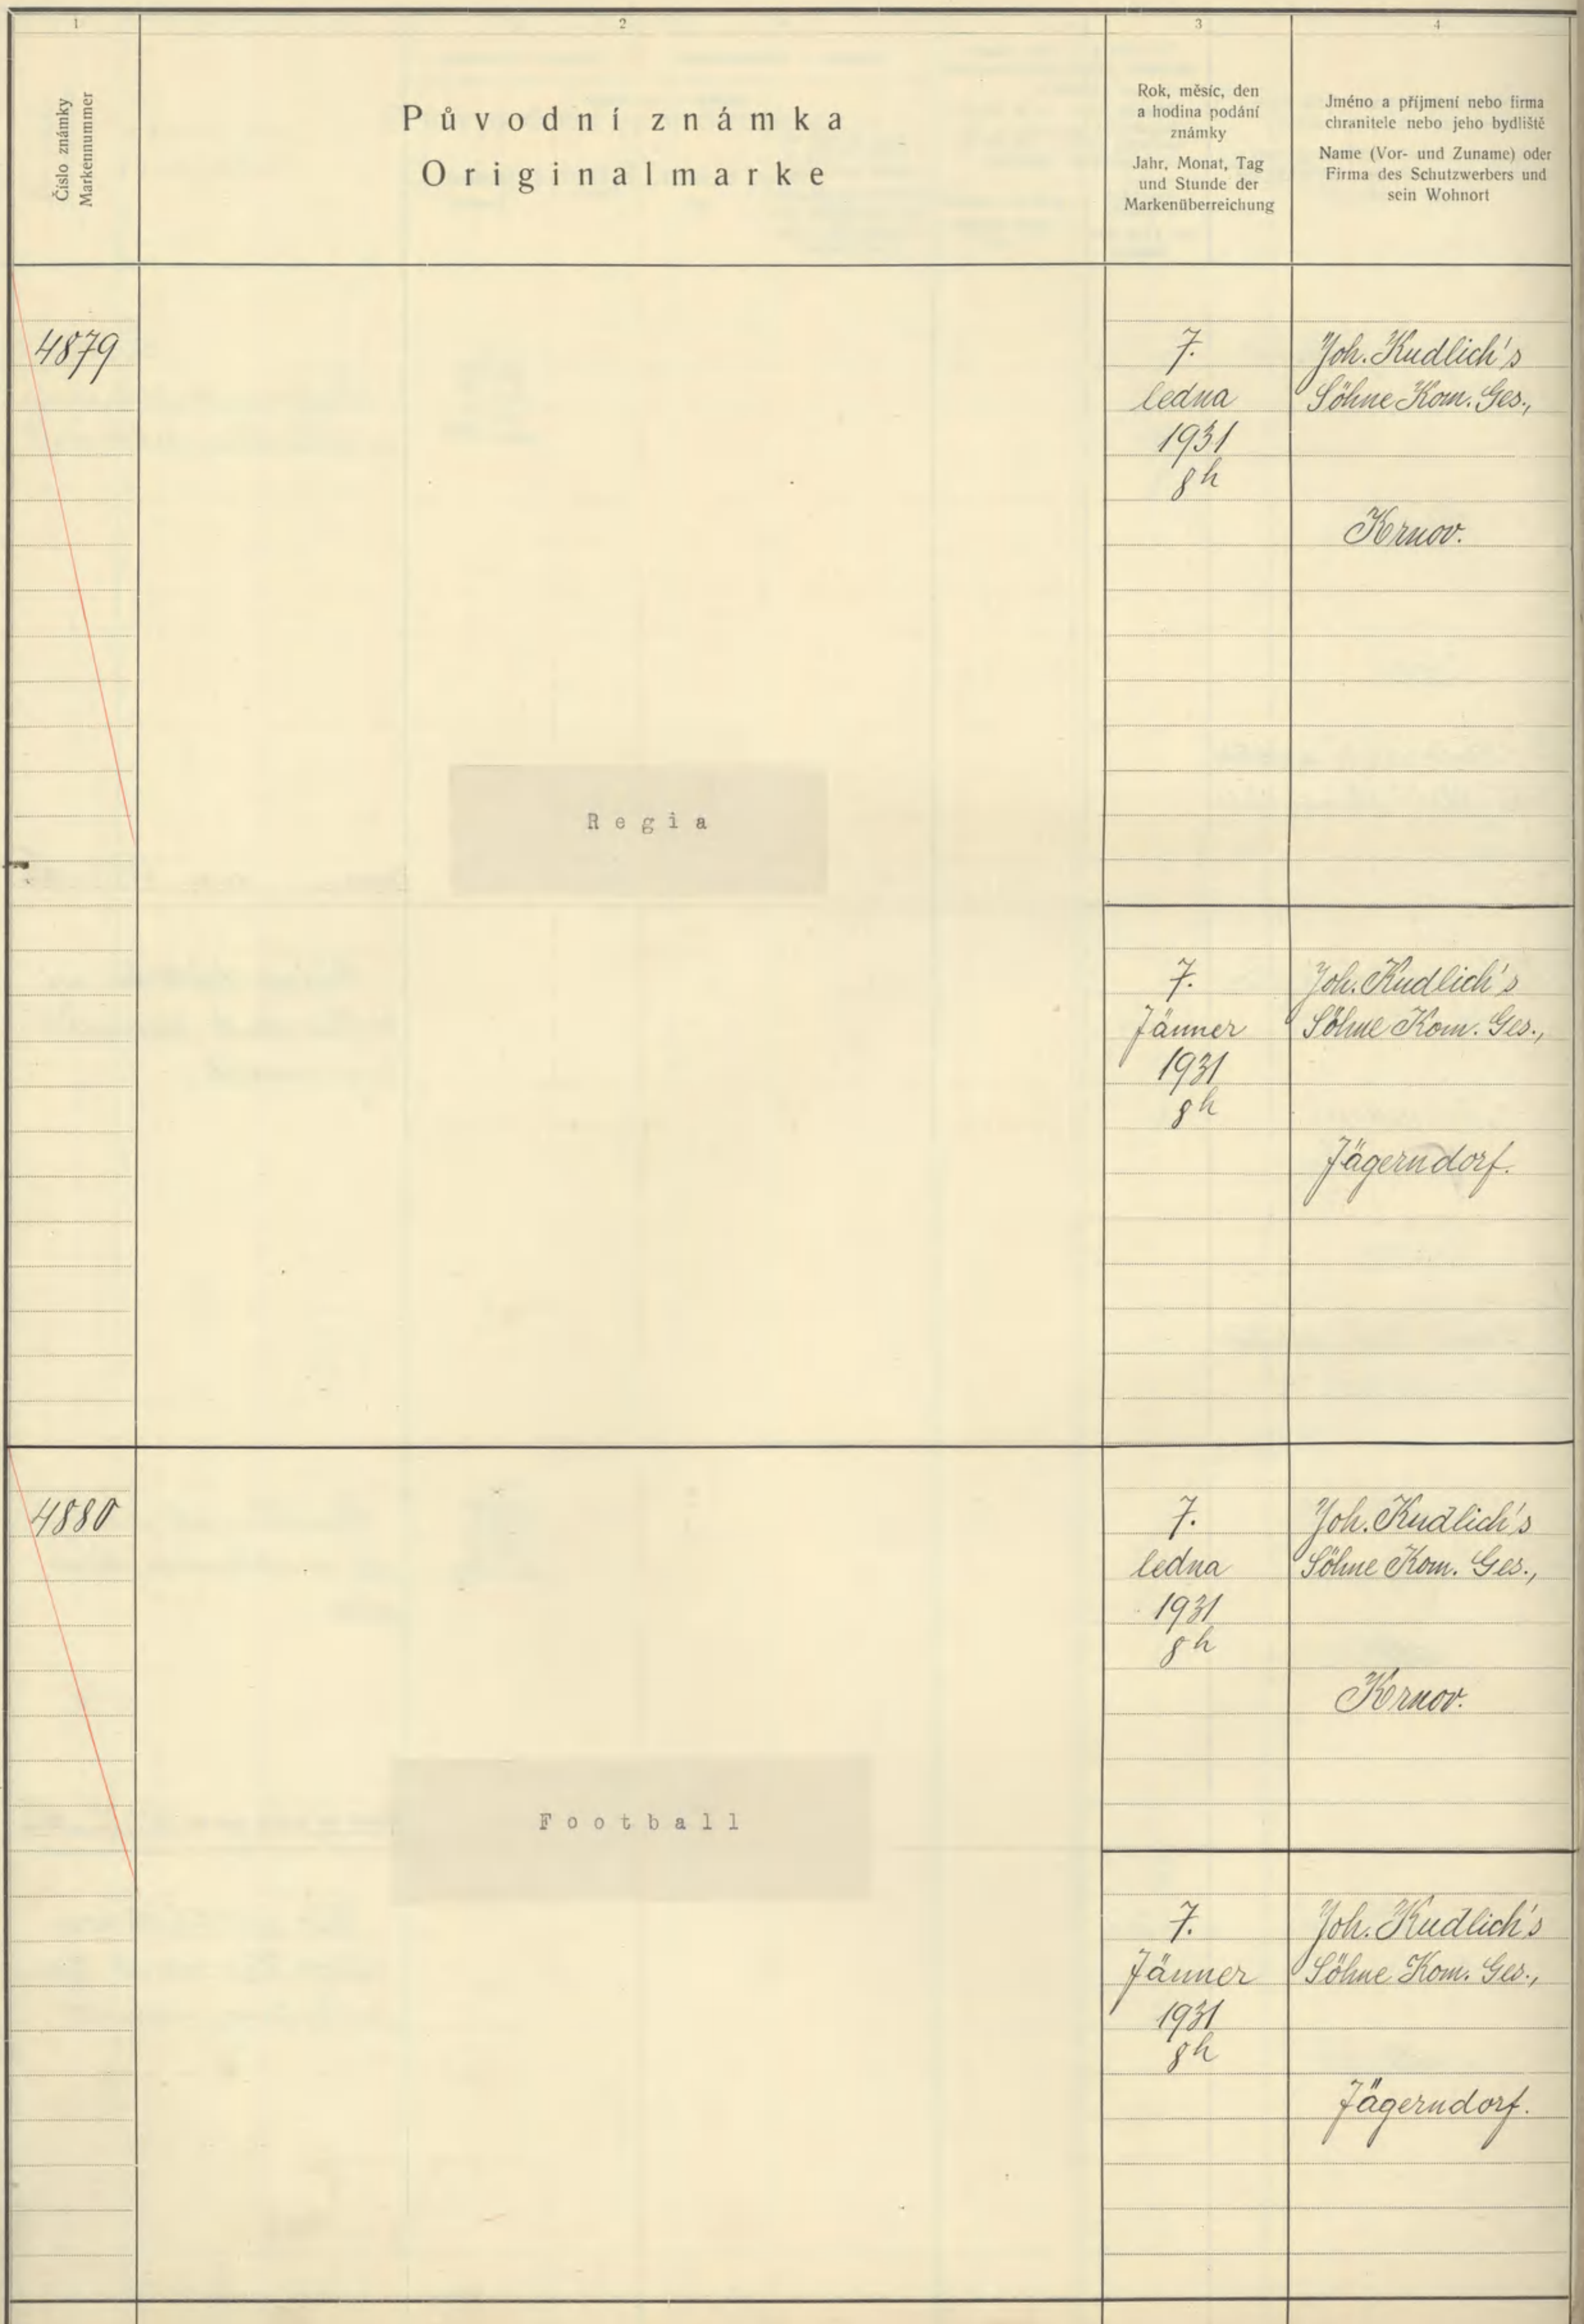 1
2
3
4
Číslo známky
Markennummer
Původní známka
Originalmarke
Rok, měsíc, den
a hodina podání
známky
Jahr, Monat, Tag
und Stunde der
Markenüberreichung
Jméno a příjmení nebo firma
chranitele nebo jeho bydliště
Name (Vor- und Zuname) oder
Firma des Schutzwerbers und
sein Wohnort
4879
Regia
7.
ledna
1931
8h
Joh. Kudlich's
Söhne Kom. Ges.,
Krnov.
7.
Jänner
1931
8h
Joh. Kudlich's
Söhne Kom. Ges.,
Jägerndorf.
4880
Football
7.
ledna
1931
8h
Joh. Kudlich's
Söhne Kom. Ges.,
Krnov.
7.
Jänner
1931
8h
Joh. Kudlich's
Söhne Kom. Ges.,
Jägerndorf.